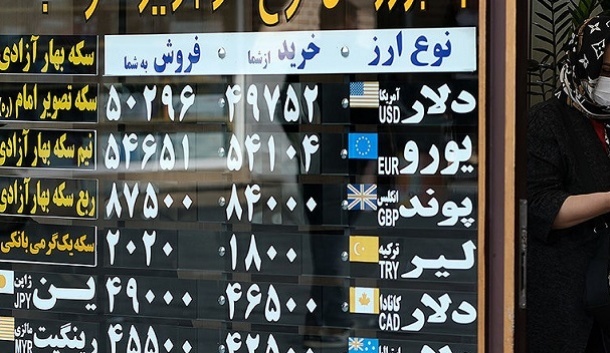 نوع ارز خرید از شما فروش به شما سکه بهار آزادی
دلار آمریکا USD ۴۹۷۵۲ ۵۰۲۹۶ سکه تصویر امام (ره)
یورو EUR ۵۴۱۰۴ ۵۴۶۵۱ نیم سکه بهار آزادی
پوند انگلیس GBP ۸۴۰۰۰ ۸۷۵۰۰ ربع سکه بهار آزادی
لیر ترکیه TRY ۱۸۰۰ ۲۰۲۰ سکه یک گرمی بانکی
دلار کانادا CAD ۴۶۵۰۰ ۴۹۰۰۰ ین ژاپن JPY
۴۲۵۰۰ ۴۵۵۰۰ رینگیت مالزی MYR